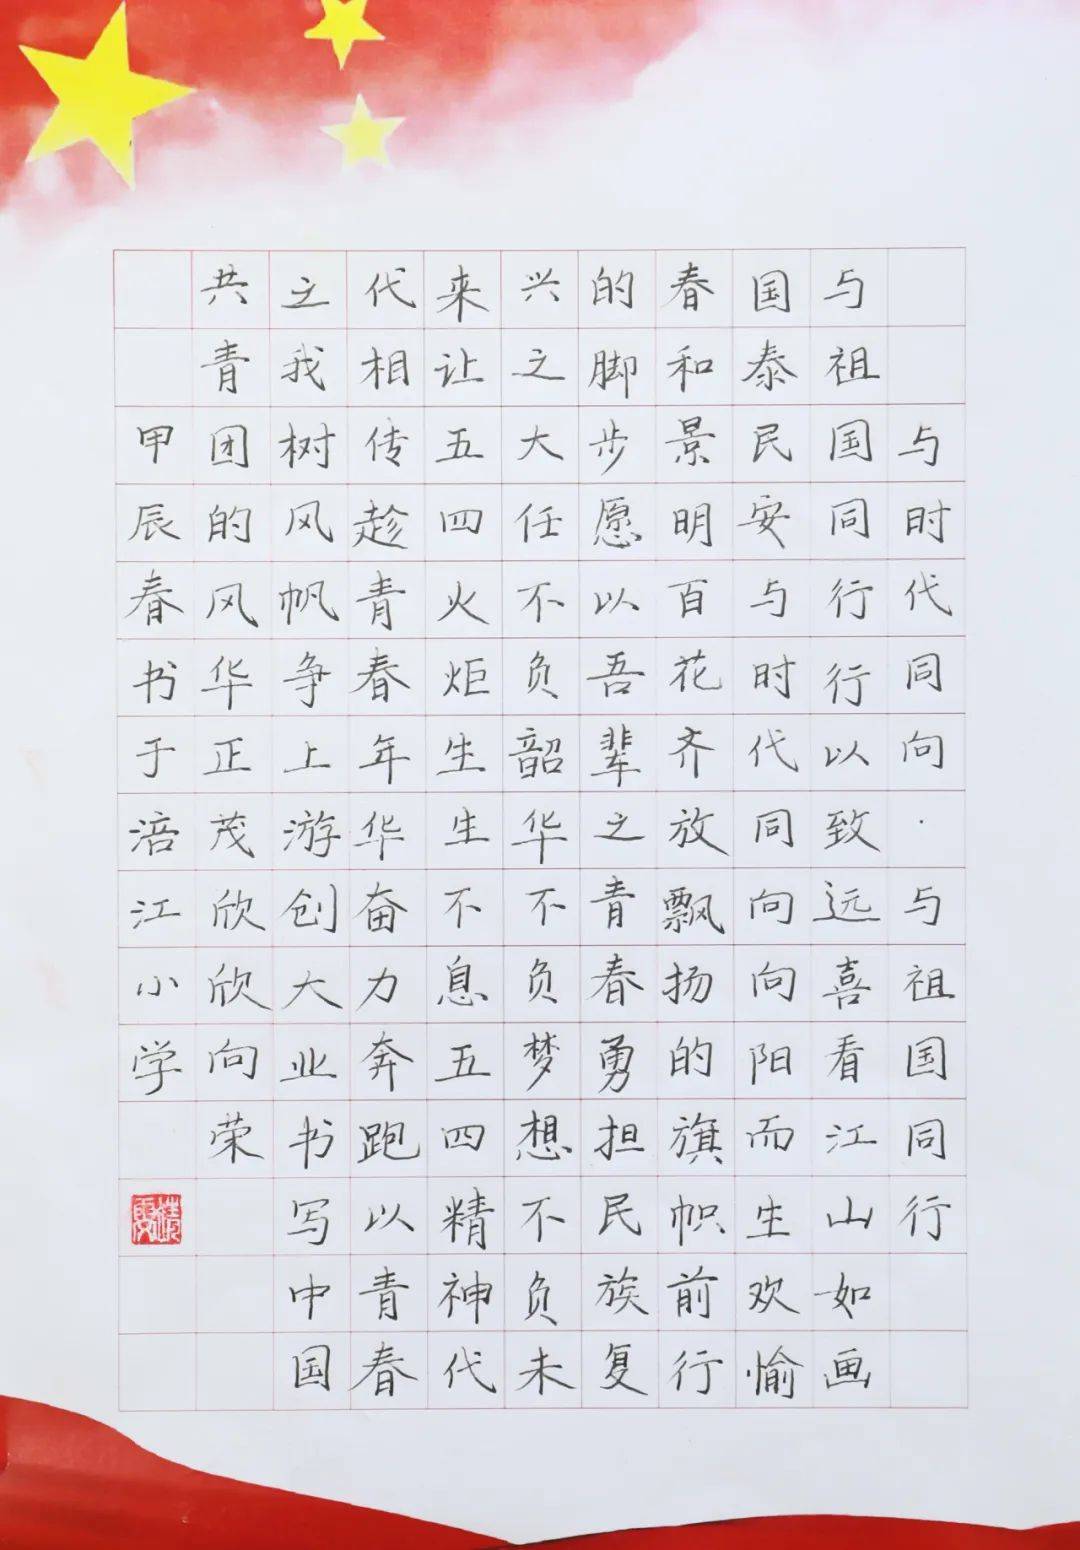 与时代同向·与祖国同行
与祖国同行行以致远喜看江山如画
国泰民安与时代同向向阳而生欢愉
春和景明百花齐放飘扬的旗帜前行
的脚步愿以吾辈之青春勇担民族复
兴之大任不负韶华不负梦想不负未
来让五四火炬生生不息五四精神代
代相传趁青春年华奋力奔跑以青春
之我树风帆争上游创大业书写中国
共青团的风华正茂欣欣向荣
甲辰春书于涪江小学